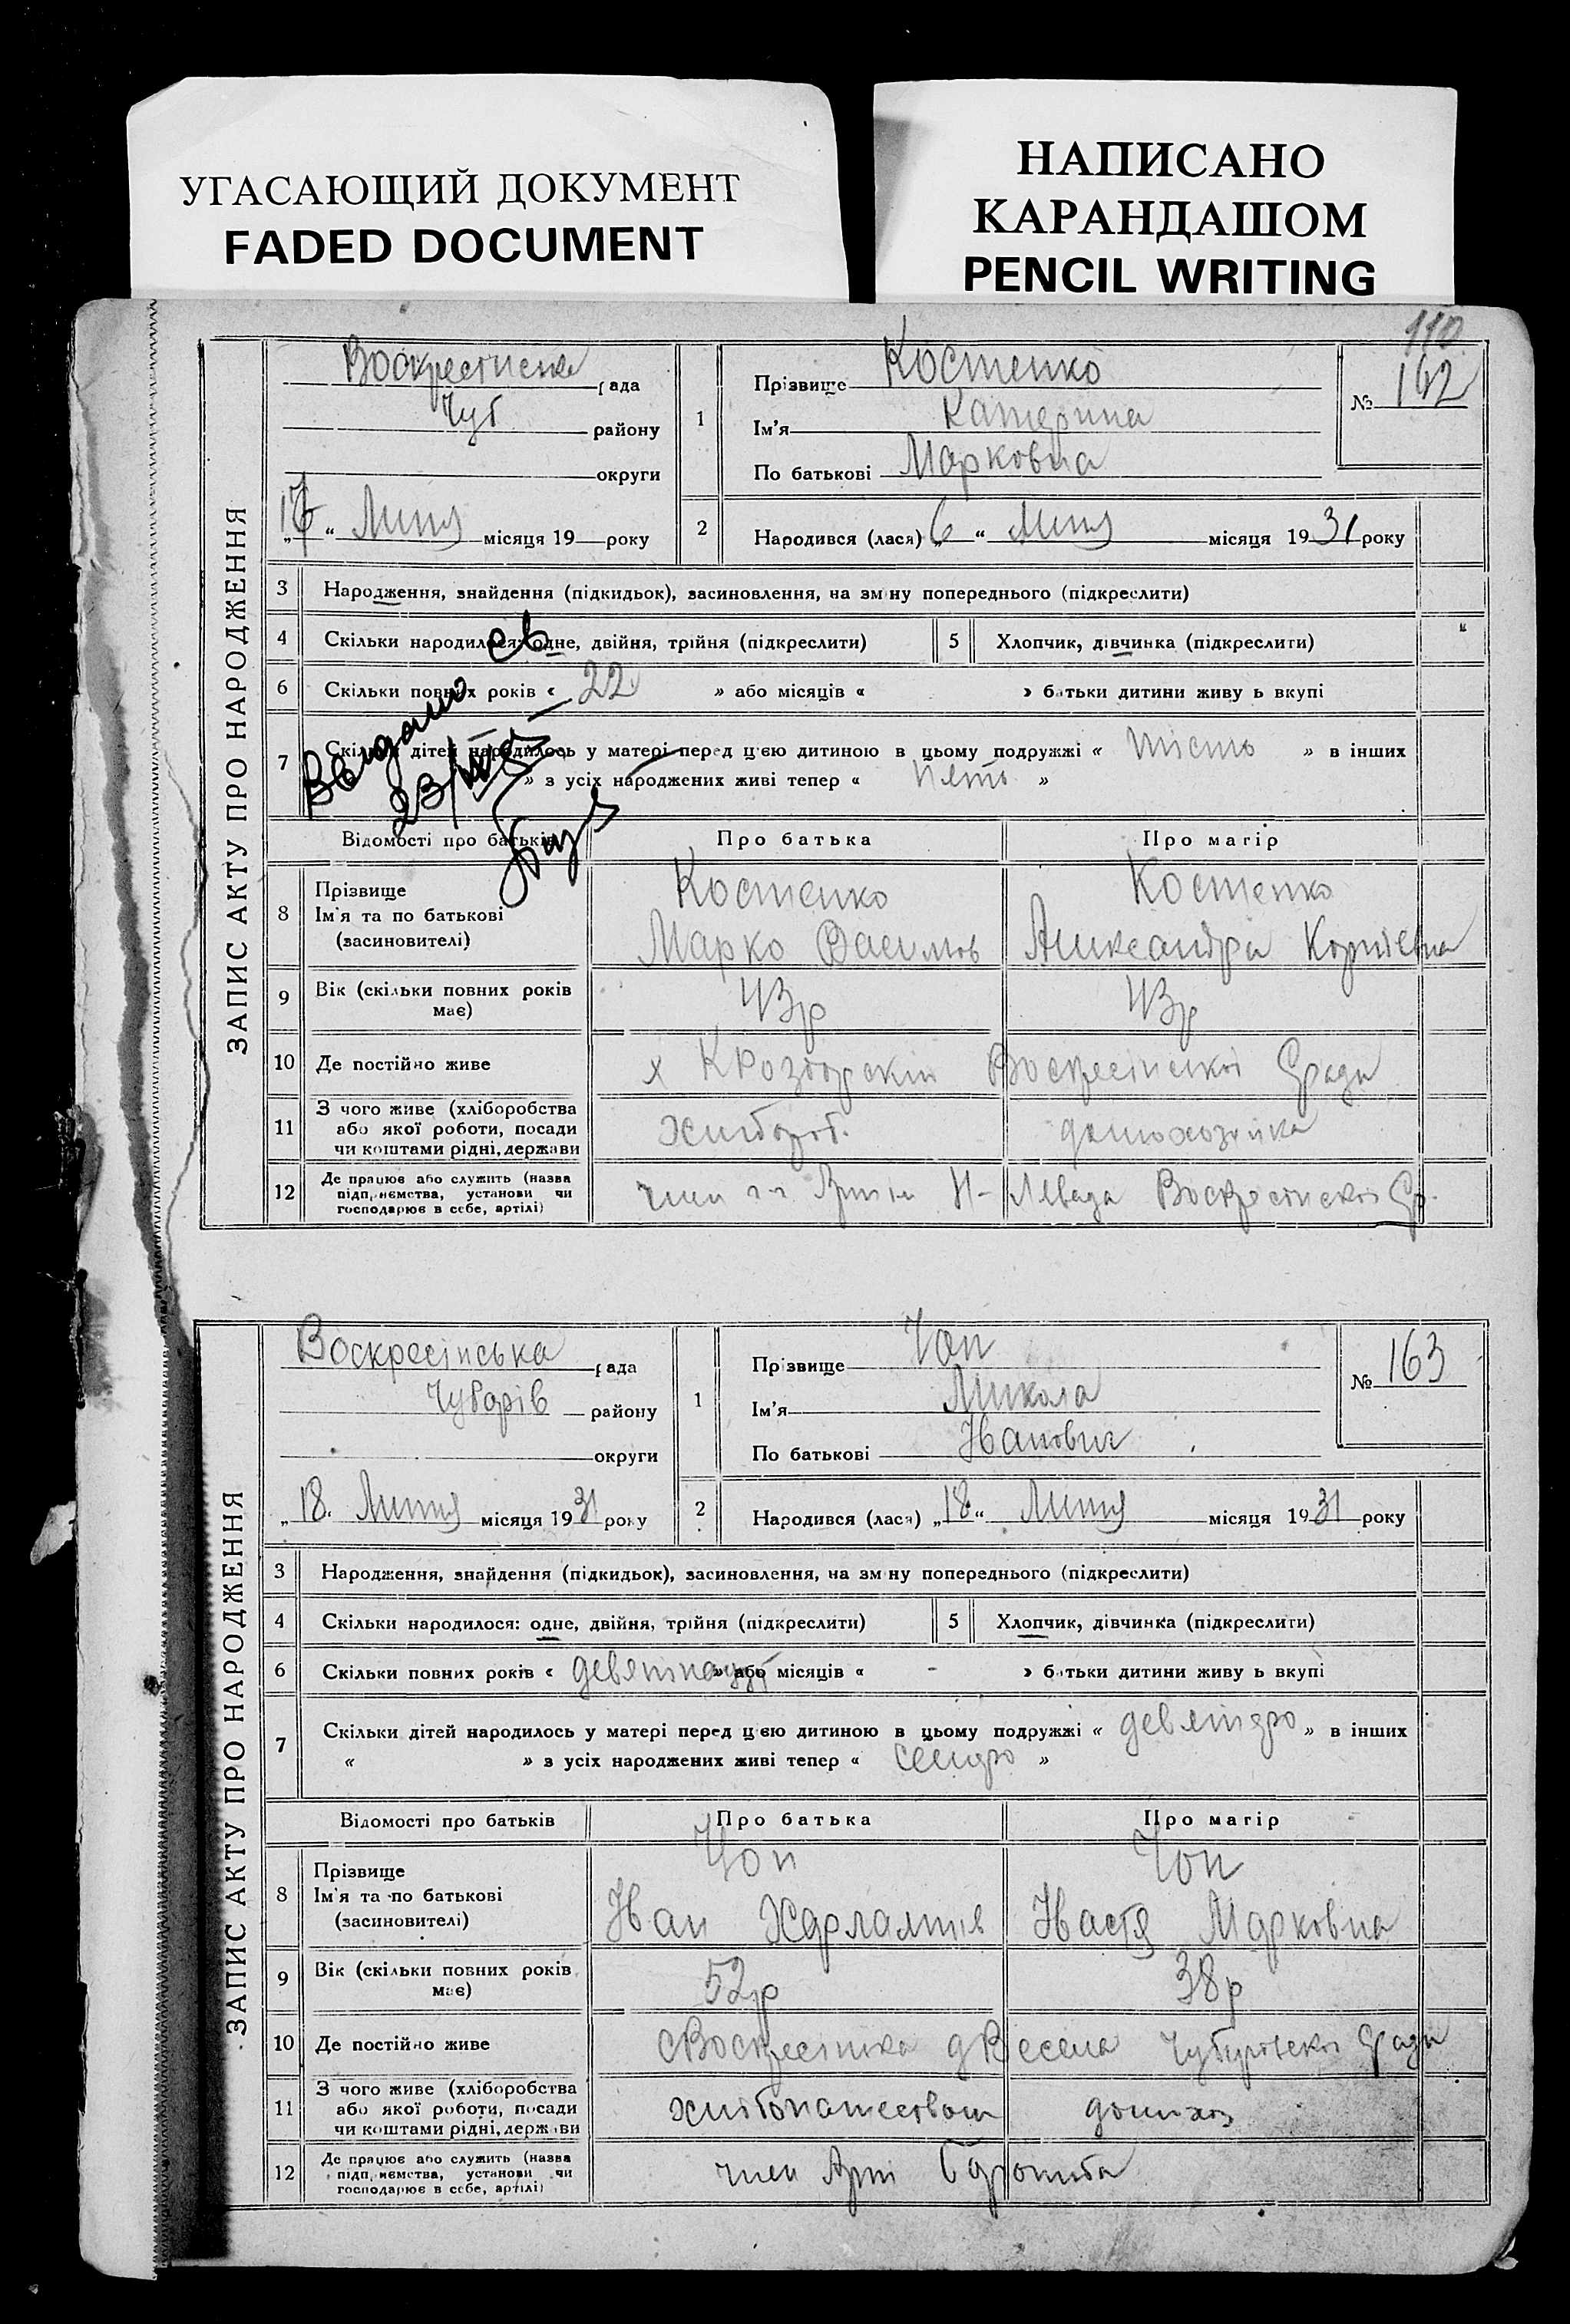 УГАСАЮЩИЙ ДОКУМЕНТ
FADED DOCUMENT
НАПИСАНО
КАРАНДАШОМ
PENCIL WRITING
110
ЗАПИС АКТУ ПРО НАРОДЖЕННЯ
Воскресінська рада
Чуб району
округи
17 " Липня місяця 19 року
1 Прізвище Костенко
Ім'я Катерина
По батькові Марковна
№ 162
2 Народився (лася) „6 " Липня місяця 1931 року
3 Народження, знайдення (підкидьок), засиновлення, на зміну попереднього (підкреслити)
4 Скільки народилося: одне, двійня, трійня (підкреслити) 5 Хлопчик, дівчинка (підкреслити)
6 Скільки повних років « 22 » або місяців « » батьки дитини живуть вкупі
7 Скільки дітей народилось у матері перед цією дитиною в цьому подружжі « шість » в інших
» з усіх народжених живі тепер « пять »
Видано св
23/
Відомості про батьків Про батька Про матір
8 Прізвище
Ім'я та по батькові
(засновителі)
Костенко Костенко
Марко Васильов Александра Корніевна
9 Вік (скільки повних років має) 43р 43р
10 Де постійно живе х Воскресінської Сради
11 З чого живе (хліборобства
або якої роботи, посади
чи коштами рідні, держави
Хлібороб. домохозяйка
12 Де працює або служить (назва
підприємства, установи чи
господарює в себе, артілі)
член Артіли Н-Левада Воскресінскоі Ср.
ЗАПИС АКТУ ПРО НАРОДЖЕННЯ
Воскресінська рада
Чубарів району
округи
„18" Липня місяця 1931 року
1 Прізвище Чоп
Ім'я Микола
По батькові Іванович
№ 163
2 Народився (лася) „18" Липня місяця 1931 року
3 Народження, знайдення (підкидьок), засиновлення, на зміну попереднього (підкреслити)
4 Скільки народилося: одне, двійня, трійня (підкреслити) 5 Хлопчик, дівчинка (підкреслити)
6 Скільки повних років « девятнацять » або місяців « - » батьки дитини живуть вкупі
7 Скільки дітей народилось у матері перед цією дитиною в цьому подружжі « девятеро » в інших
« » з усіх народжених живі тепер « семеро »
Відомості про батьків Про батька Про матір
8 Прізвище
Ім'я та по батькові
(засиновителі)
Чоп Чоп
Іван Харлампів Настя Марковна
9 Вік (скільки повних років має) 52р 38р
10 Де постійно живе с Воскресінка д Весела Чубарівскоі Сради
11 З чого живе (хліборобства
або якої роботи, посади
чи коштами рідні, держави
хлібопашеством домхоз
12 Де працює або служить (назва
підприємства, установи чи
господарює в себе, артілі)
член Арті Боротьба